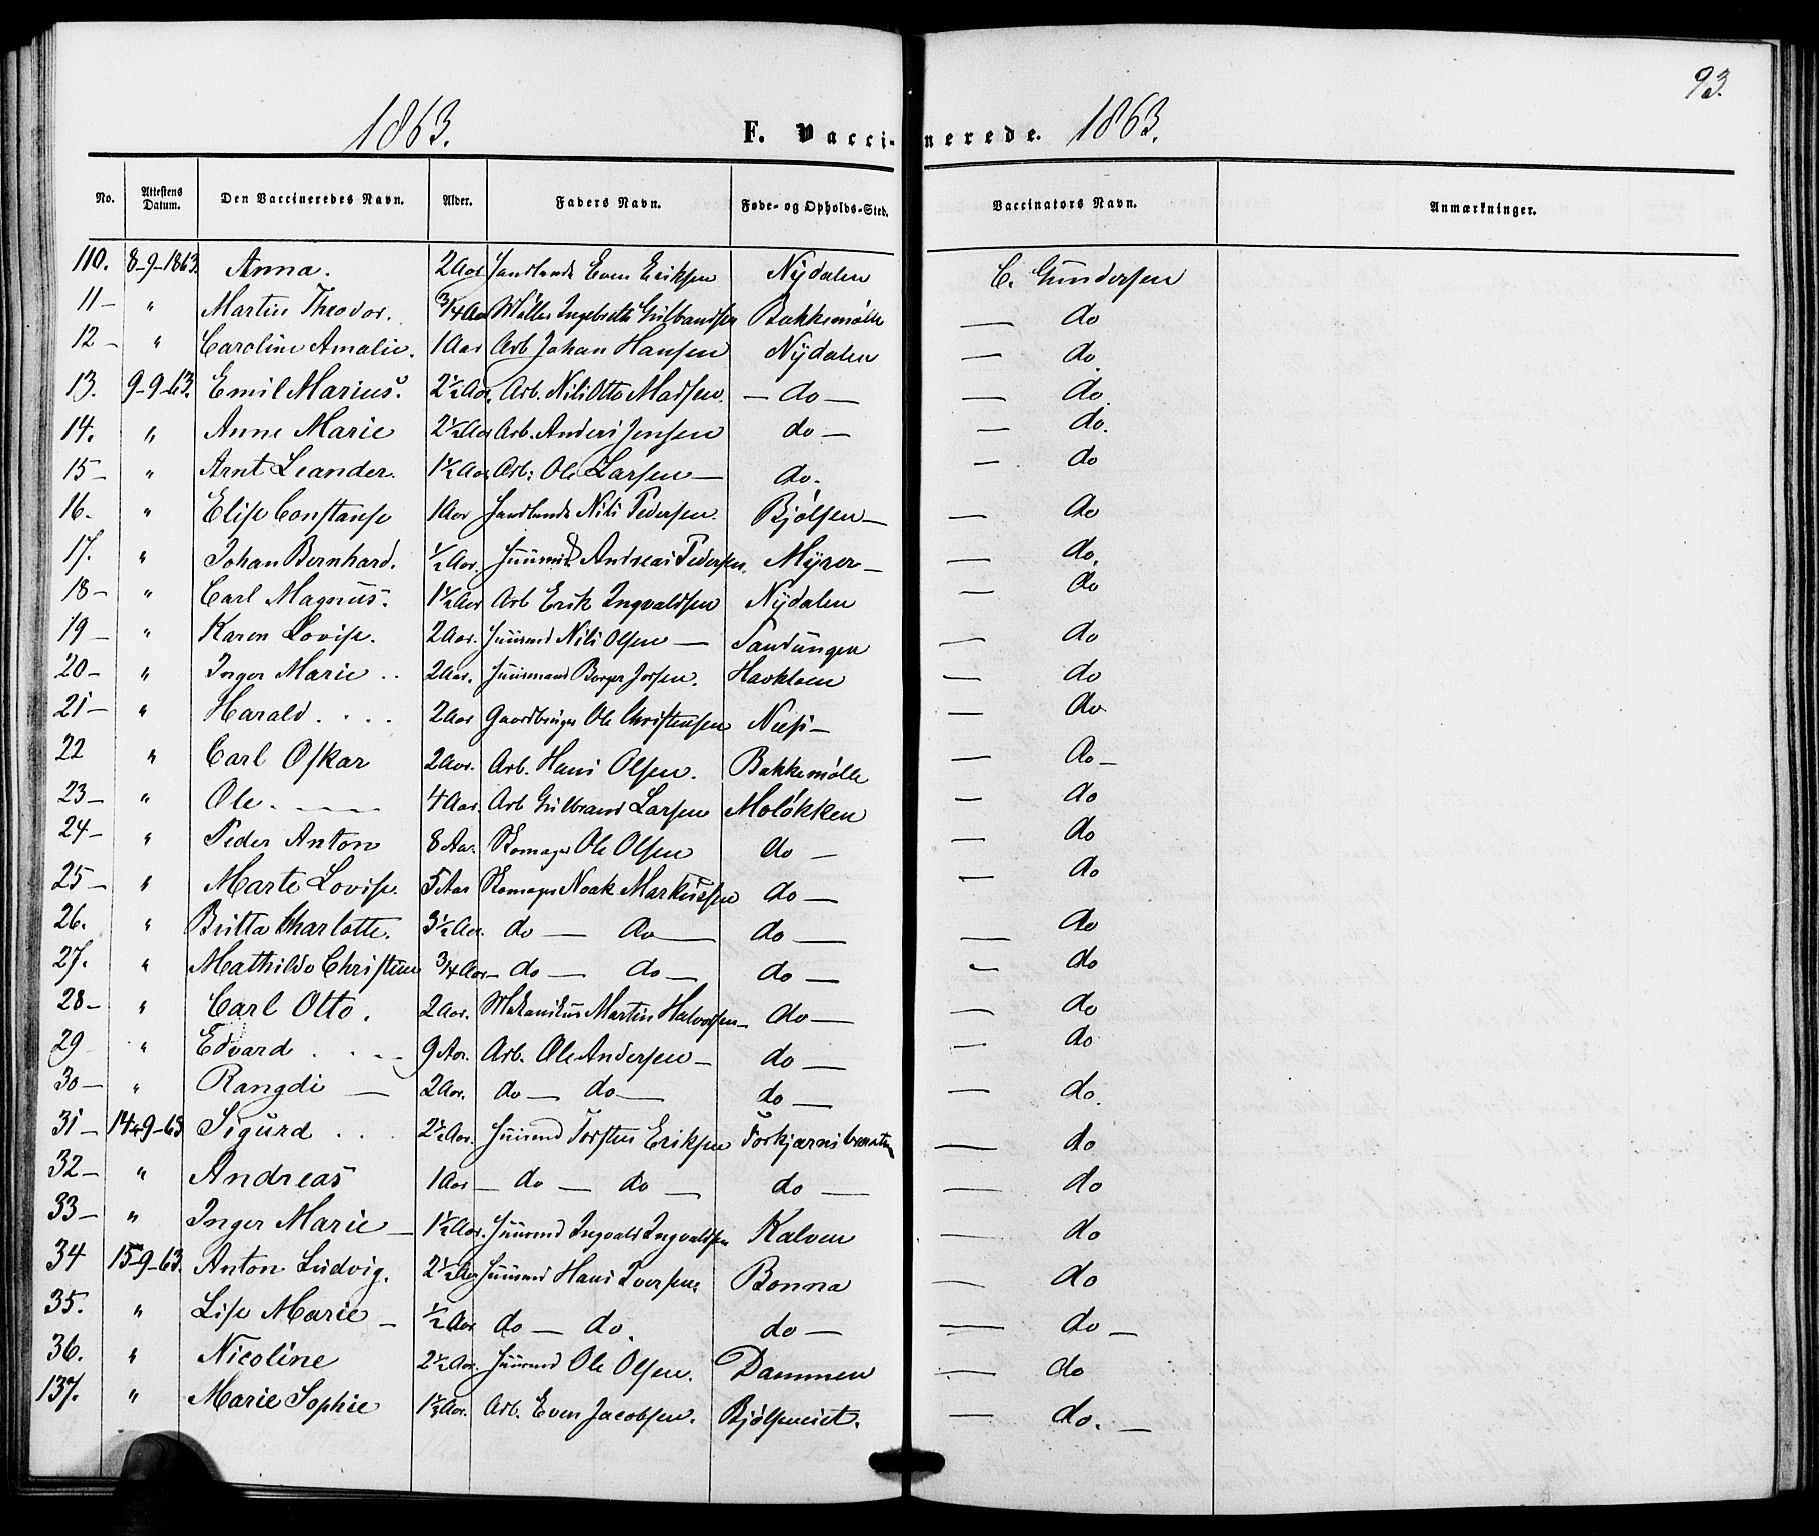 93.
1863. F. Vaccinerede. 1863.
No. Attestens Datum. Den Vaccineredes Navn. Alder. Faders Navn. Føde- og Opholds-Sted. Vaccinators Navn. Anmærkninger.
110. 8-9-1863. Anna. 2 Aar Even Eriksen Nydalen C. Gundersen
11- " Martin Theodor. 3/4 Aar Møller Ingebreth Gulbrandsen Bakkemølle — do
12- " Caroline Amalie. 1 Aar Arb Johan Hansen Nydalen — do.
13. 9-9-63. Emil Marius. 2½ Aar. Arb. Nils Otto Madsen. — do — — do.
14. " Anne Marie 2½ Aar Arb. Anders Jensen do — — do.
15- " Arnt Leander. 1½ Aar Arb: Ole Larsen — do. — do
16. " Elise Constanse 1 Aar Nils Pedersen. Bjølsen — — do
17. " Johan Bernhard. ½ Aar. Huusmd. Andreas Pedersen. Myrer — — do.
18- " Carl Magnus. 1½ Aar Arb Erik Ingvaldsen Nydalen — do
19- " Karen Lovise. 2 Aar. Huusmd Nils Olsen — Sandungen — do
20- " Inger Marie .. 2 Aar. Huusmand Borger Jossen. — do
21- " Harald .... 2 Aar Gaardbruger Ole Christensen — do
22 " Carl Oskar 2 Aar. Arb. Hans Olsen. Bakkemølle — do —
23- " Ole. — — 4 Aar. Arb Gulbrand Larsen Moløkken — do
24- " Peder Anton 8 Aar. Ole Olsen do — — do
25- " Marte Lovise. 5 Aar Noak Markussen do — — do
26. " Britta Charlotte. 3½ Aar. do — do — do — — do
27. " Mathilde Christine 3/4 Aar — do — do — do — — do
28- " Carl Otto. 2 Aar. Mekanikus Martin Halvorsen — do — — do
29 " Edvard . . — 9 Aar. Arb. Ole Andersen — do — — do
30- " Rangdi — 2 Aar. do — do — do — — do.
31- 14-9-63 Sigurd ... 2½ Aar. Huusmd Torsten Eriksen — do
32- " Andreas 1 Aar — do — do — do — — do
33- " Inger Marie — 1½ Aar. Huusmd Ingvald Ingvaldsen Kalven — do
34 15-9-63. Anton Ludvig. 2½ Aar Huusmd Hans Iversen. Bonna — do
35. " Lise Marie — ½ Aar do — do. do — — do —
36. " Nicoline 2½ Aar. Huusmd Ole Olsen. Dammen — do
137. " Marie Sophie Arb. Even Jacobsen. — do. —